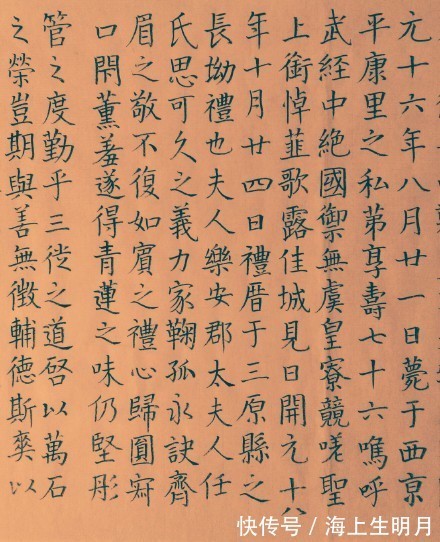 元十六年八月廿一日薨于西京
平康里之私苐享壽七十六嗚呼
武經中絶國禦無虞皇寮競嗟聖
上銜悼薤歌露佳城見日開元十八
年十月廿四日禮厝于三原縣之
長坳禮也夫人樂安郡太夫人任
氏思可久之義力家鞠孤永訣齊
眉之敬不復如賓之禮心歸圓寂
口閇薰羞遂得青蓮之味仍堅彤
管之度勤乎三徙之道啓以萬石
之榮豈期與善無徵輔德斯爽以
快传号/海上生明月